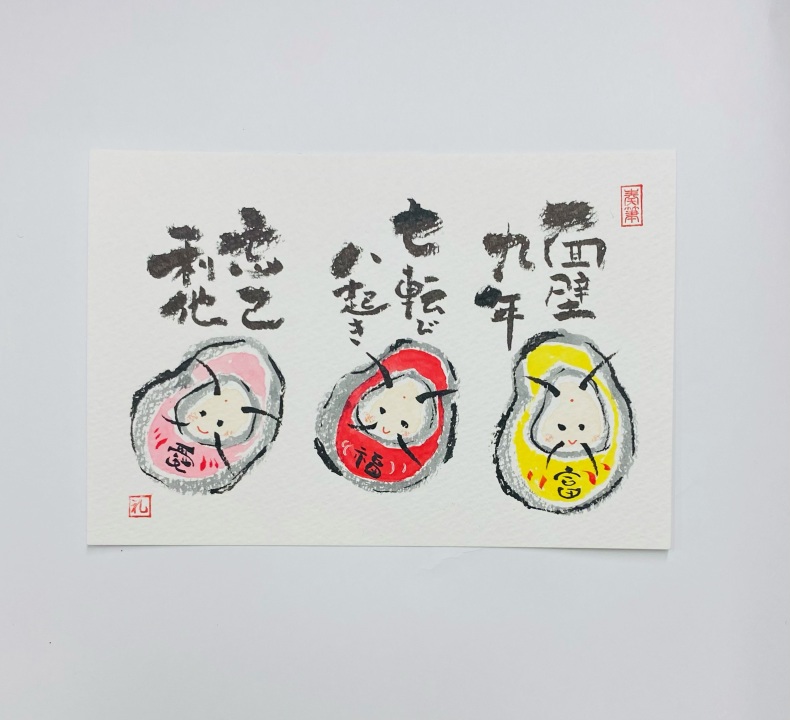 面壁
九年
七転び
八起き
忘己
利他
富
福
礼